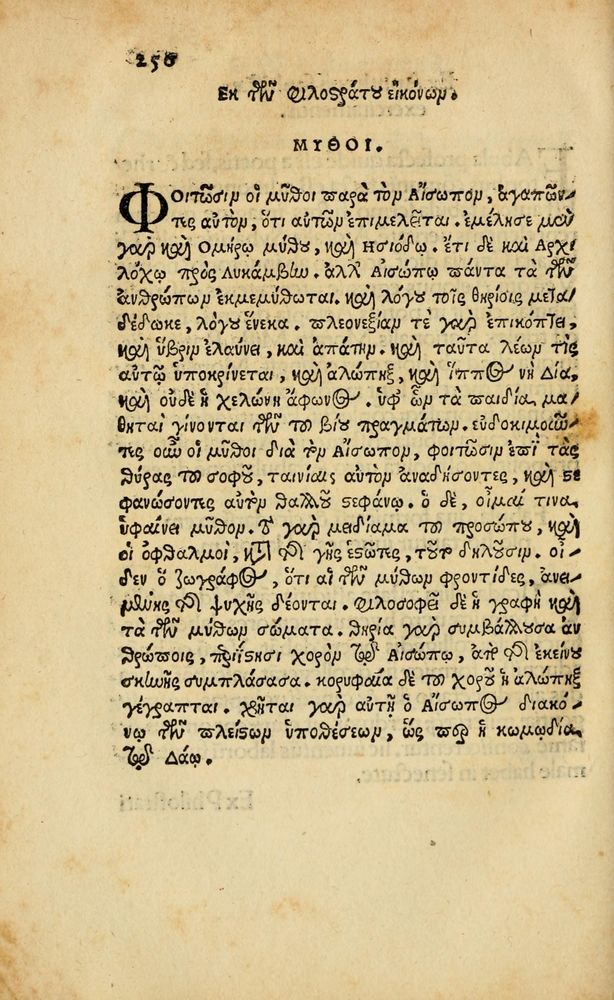 250
Εκ τῶν Φιλοστράτου εἰκόνων.
ΜΥΘΟΙ.
ΦΟΙΤῶσιν οἱ μῦθοι παρὰ τὸν Αἴσωπον, ἀγαπῶν
τες αὐτὸν, ὅτι αὐτῶν ἐπιμελεῖται. ἐμέλησε μὲν
γὰρ καὶ Ομήρῳ μύθου, καὶ Ησιόδῳ. ἔτι δὲ καὶ Αρχι
λόχῳ πρὸς Λυκάμβην. ἀλλ' Αἰσώπῳ πάντα τὰ τῶν
ἀνθρώπων ἐκμεμύθωται. καὶ λόγου τοῖς θηρίοις μετα
δέδωκε, λόγου ἕνεκα. πλεονεξίαν τε γὰρ ἐπικόπτει,
καὶ ὕβριν ἐλαύνει, καὶ ἀπάτην. καὶ ταῦτα λέων τις
αὐτῷ ὑποκρίνεται, καὶ ἀλώπηξ, καὶ ἵππος νὴ Δία,
καὶ οὐδὲ ἡ χελώνη ἄφωνος. ὑφ' ὧν τὰ παιδία, μα
θηταὶ γίνονται τῶν τοῦ βίου πραγμάτων. εὐδοκιμοῦν
τες οὖν οἱ μῦθοι διὰ τὸν Αἴσωπον, φοιτῶσιν ἐπὶ τὰς
θύρας τοῦ σοφοῦ, ταινίαις αὐτὸν ἀναδήσοντες, καὶ στε
φανώσοντες αὐτὸν θαλλοῦ στεφάνῳ. ὁ δὲ, οἶμαί τινα
ὑφαίνει μῦθον. τὸ γὰρ μειδίαμα τοῦ προσώπου, καὶ
οἱ ὀφθαλμοὶ, κατὰ τῆς γῆς ἑστῶτες, τοῦτο δηλοῦσιν. οἶ
δεν ὁ ζωγράφος, ὅτι αἱ τῶν μύθων φροντίδες, ἀνει
μένης τῆς ψυχῆς δέονται. φιλοσοφεῖ δὲ ἡ γραφὴ καὶ
τὰ τῶν μύθων σώματα. θηρία γὰρ συμβάλλουσα ἀν
θρώποις, περιίστησι χορὸν τῷ Αἰσώπῳ, ἀπὸ τῆς ἐκείνου
σκηνῆς συμπλάσασα. κορυφαία δὲ τοῦ χοροῦ ἡ ἀλώπηξ
γέγραπται. χρῆται γὰρ αὐτῇ ὁ Αἴσωπος διακό
νῳ τῶν πλείστων ὑποθέσεων, ὥς περ ἡ κωμῳδία
τῷ Δάῳ.